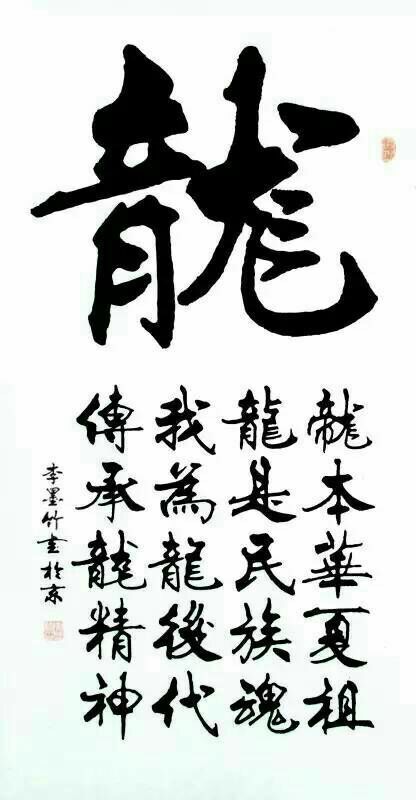 龍
龍本華夏祖
龍是民族魂
我為龍後代
傳承龍精神
李墨竹書於京